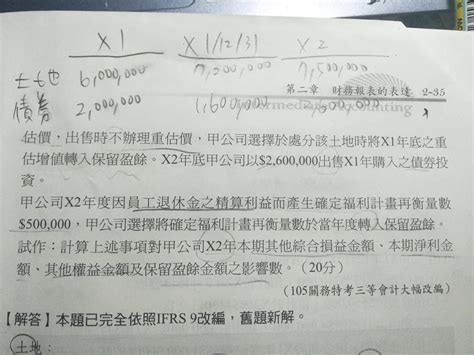 X1 X1/12/31 X2
土地 6,000,000 7,200,000 7,500,000
第二章 財務報表的表達 2-35
債券 2,000,000 1,600,000
估價，出售時不辦理重估價，甲公司選擇於處分該土地時將X1年底之重
估增值轉入保留盈餘。X2年底甲公司以$2,600,000出售X1年購入之債券投
資。
甲公司X2年度因員工退休金之精算利益而產生確定福利計畫再衡量數
$500,000，甲公司選擇將確定福利計畫再衡量數於當年度轉入保留盈餘。
試作：計算上述事項對甲公司X2年本期其他綜合損益金額、本期淨利金
額、其他權益金額及保留盈餘金額之影響數。（20分）
（105關務特考三等會計大幅改編）
【解答】本題已完全依照IFRS 9改編，舊題新解。
土地：